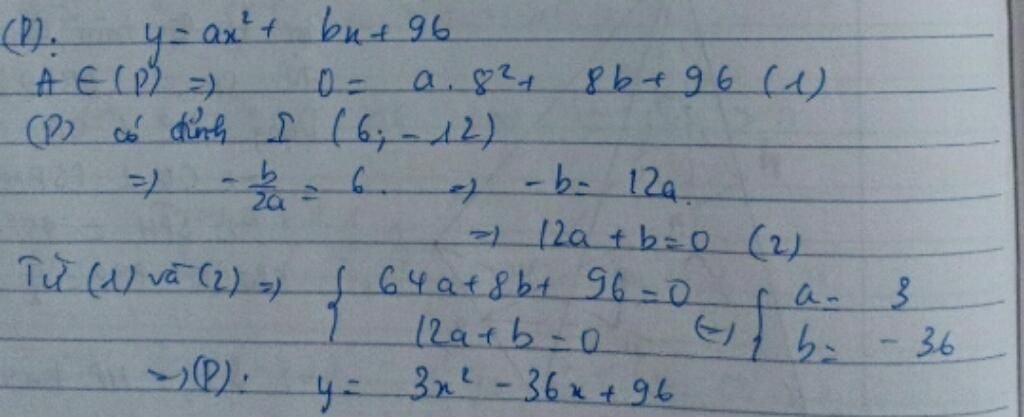 (P): y = ax² + bx + 96
A ∈ (P) => 0 = a.8² + 8b + 96 (1)
(P) có đỉnh I (6; -12)
=> -b/2a = 6. => -b = 12a.
=> 12a + b = 0 (2)
Từ (1) và (2) => { 64a + 8b + 96 = 0 { a = 3
12a + b = 0 (-) b = -36
=> (P): y = 3x² - 36x + 96